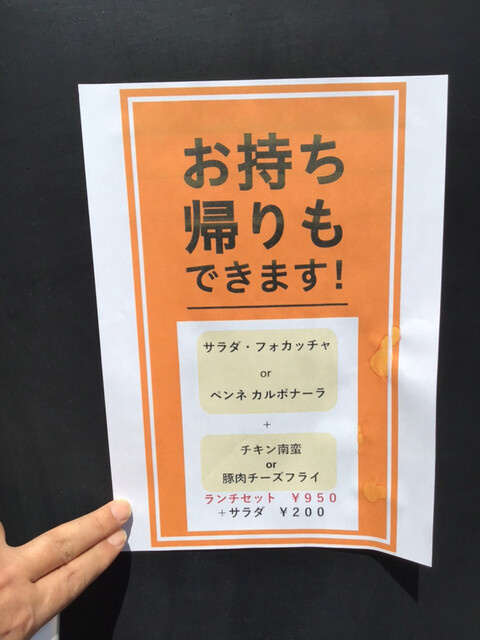 お持ち
帰りも
できます!
サラダ・フォカッチャ
or
ペンネ カルボナーラ
+
チキン南蛮
or
豚肉チーズフライ
ランチセット ¥950
+サラダ ¥200